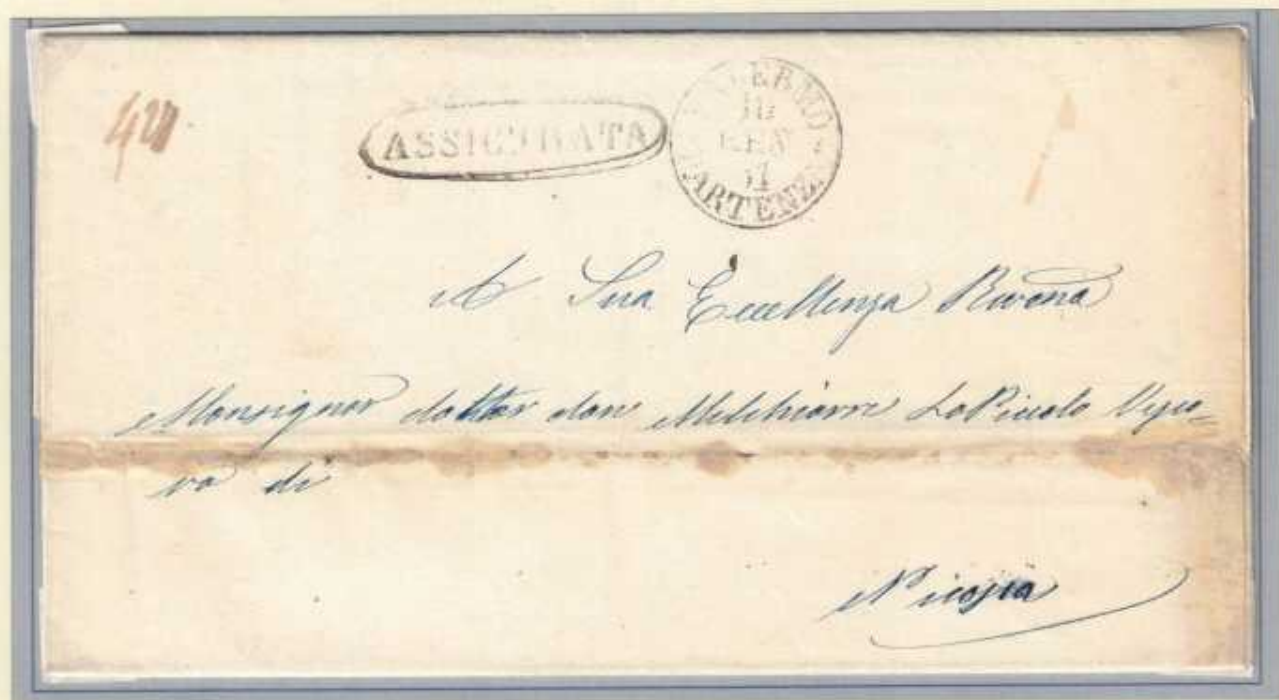 ASSICURATA
PALERMO
10
GEN
57
PARTENZA
A Sua Eccellenza Rev̄ma
Monsignor dottor don Melchiorre LoPiccolo Vesco=
vo di
Nicosia